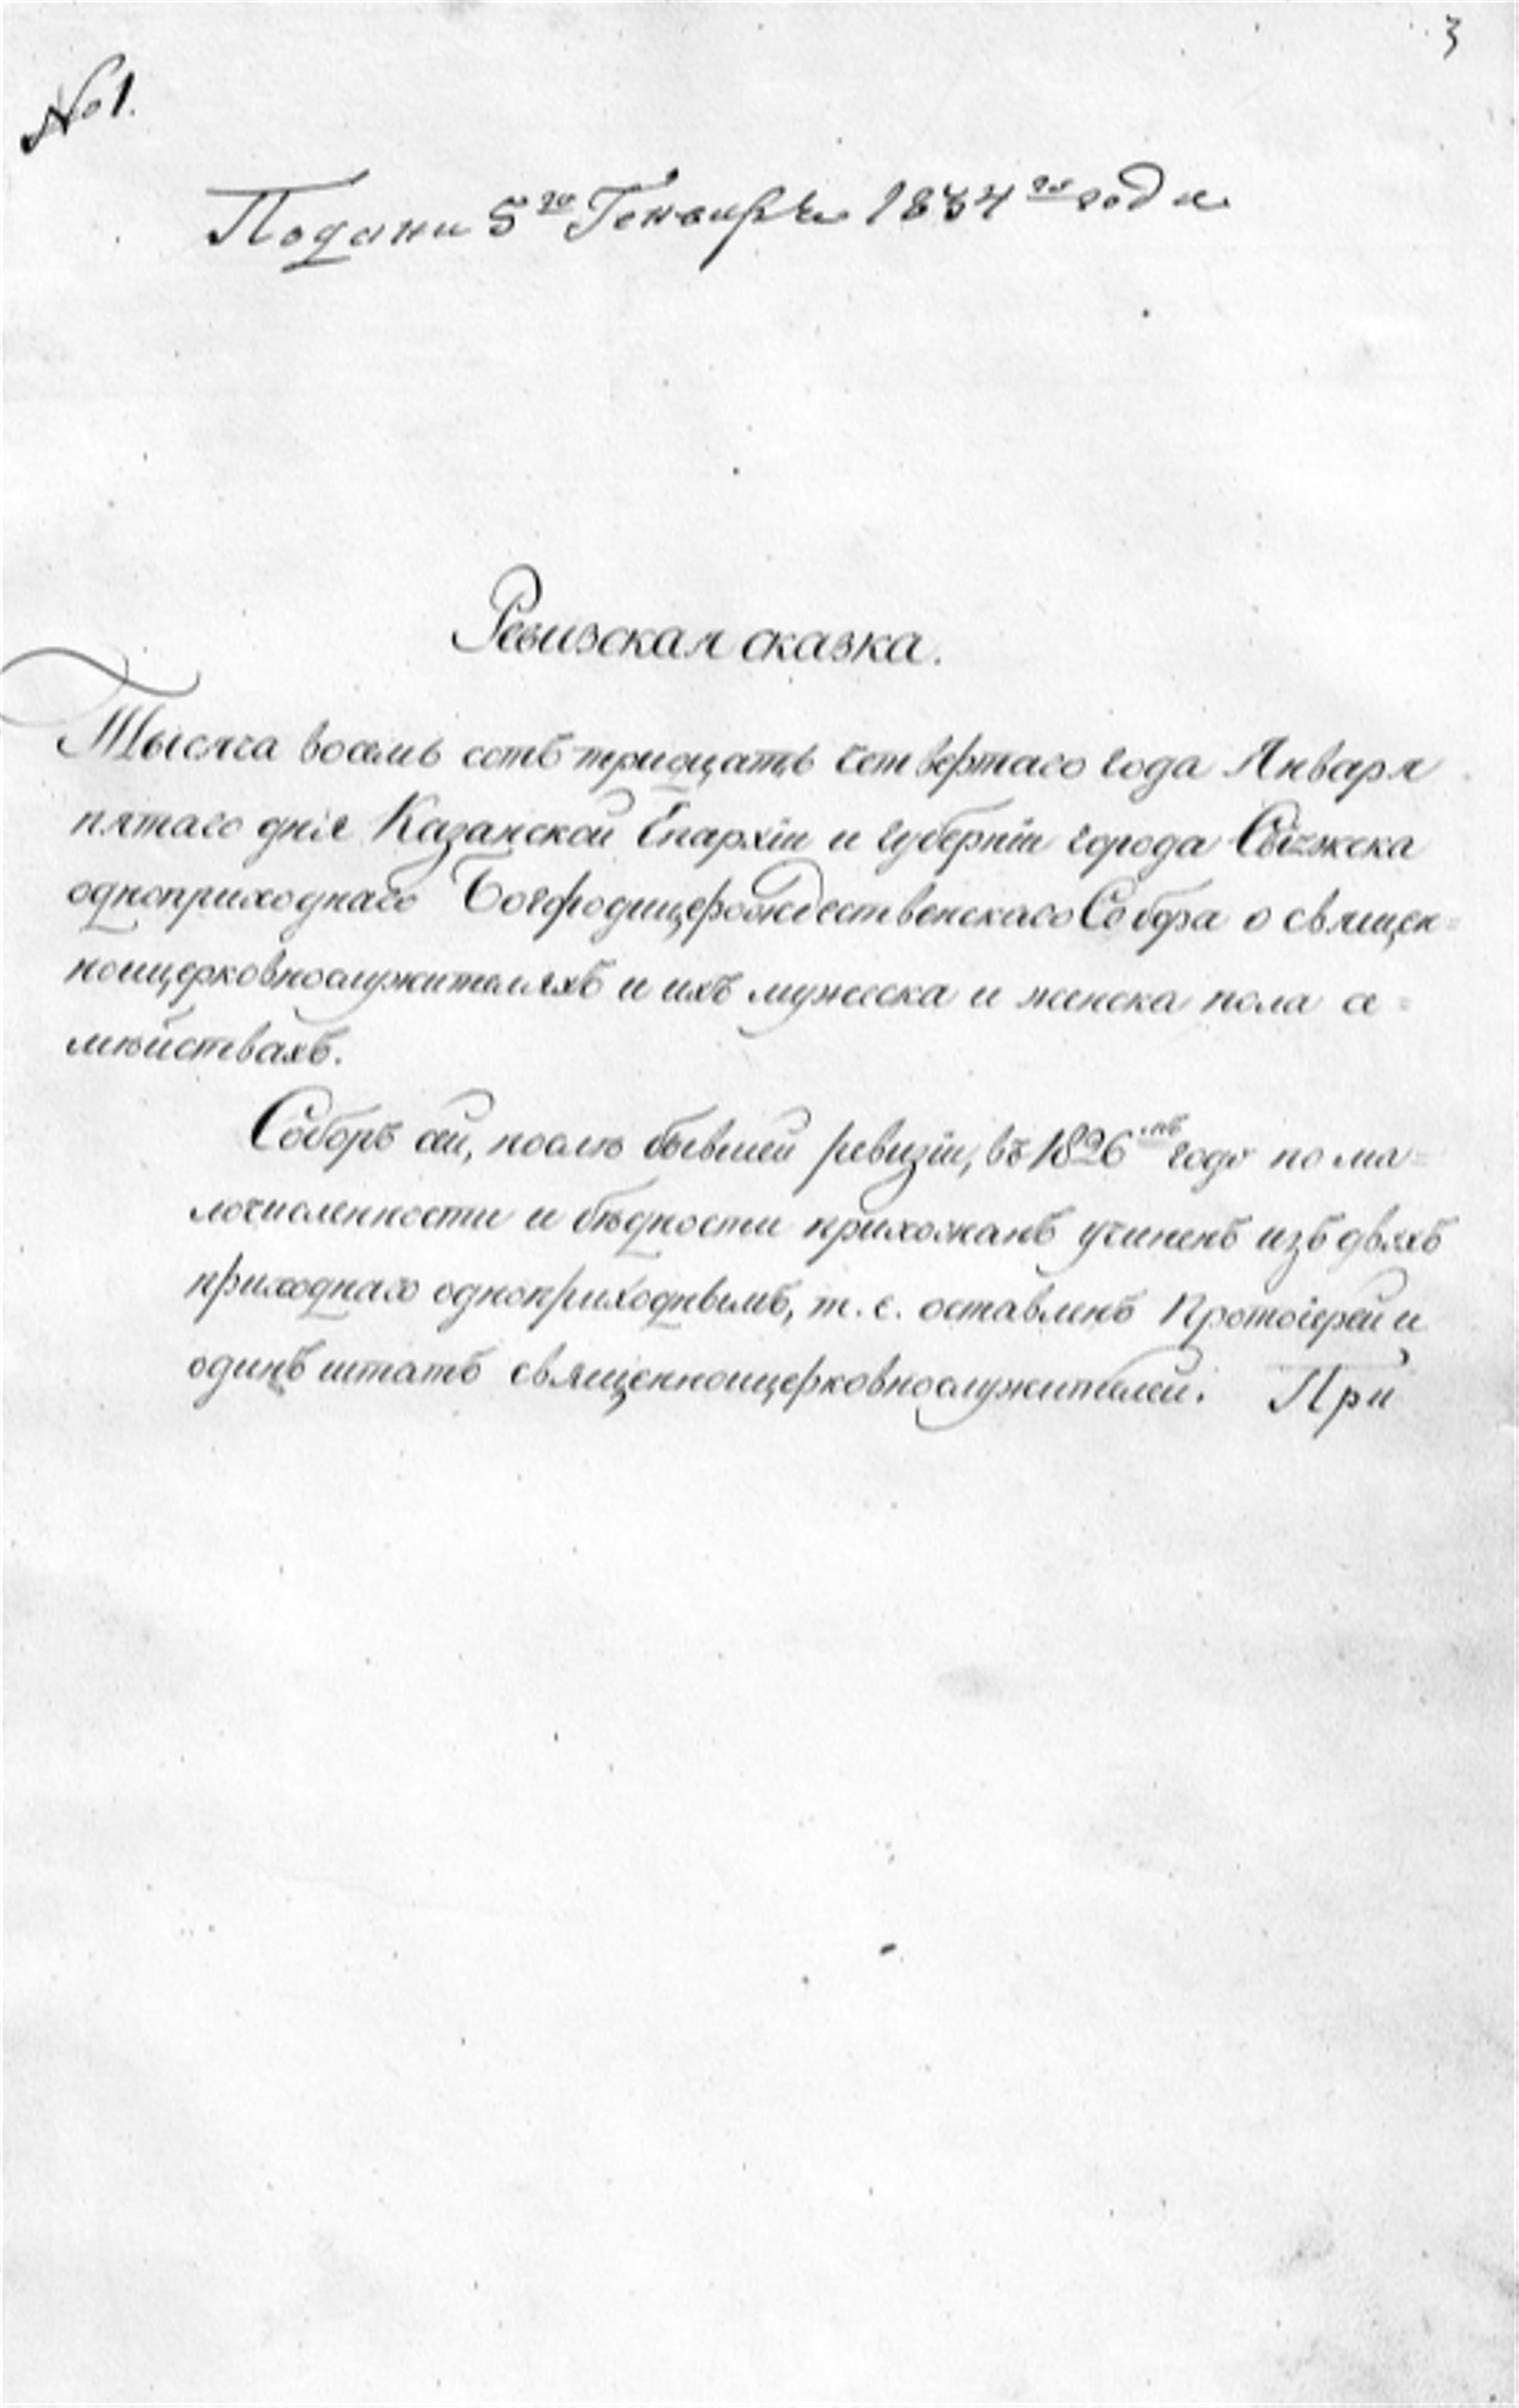 3
№ 1.
Подана 5го Генваря 1834го года
Ревизская сказка.
Тысяча восемь сотъ тридцать четвертаго года Января
пятаго дня Казанской Епархіи и Губерніи города Свіяжска
одноприходнаго Богородицерождественскаго Собора о священ=
ноицерковнослужителяхъ и ихъ мужеска и женска пола се=
мѣйствахъ.
Соборъ сей, послѣ бывшей ревизіи, въ 1826мъ году по ма=
лочисленности и бѣдности прихожанъ учиненъ изъ двухъ
приходнаго одноприходнымъ, т. е. оставленъ Протоіерей и
одинъ штатъ священноицерковнослужителей. При